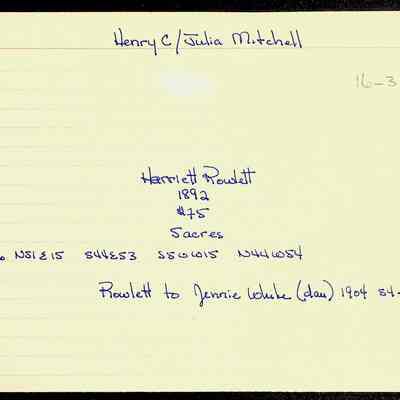 Henry C/Julia Mitchell
16-3
Harriett Rowlett
1892
$75
5acres
N51E15 S44E53 S50W15 N44W54
Rowlett to Jennie White (dau) 1904 84-